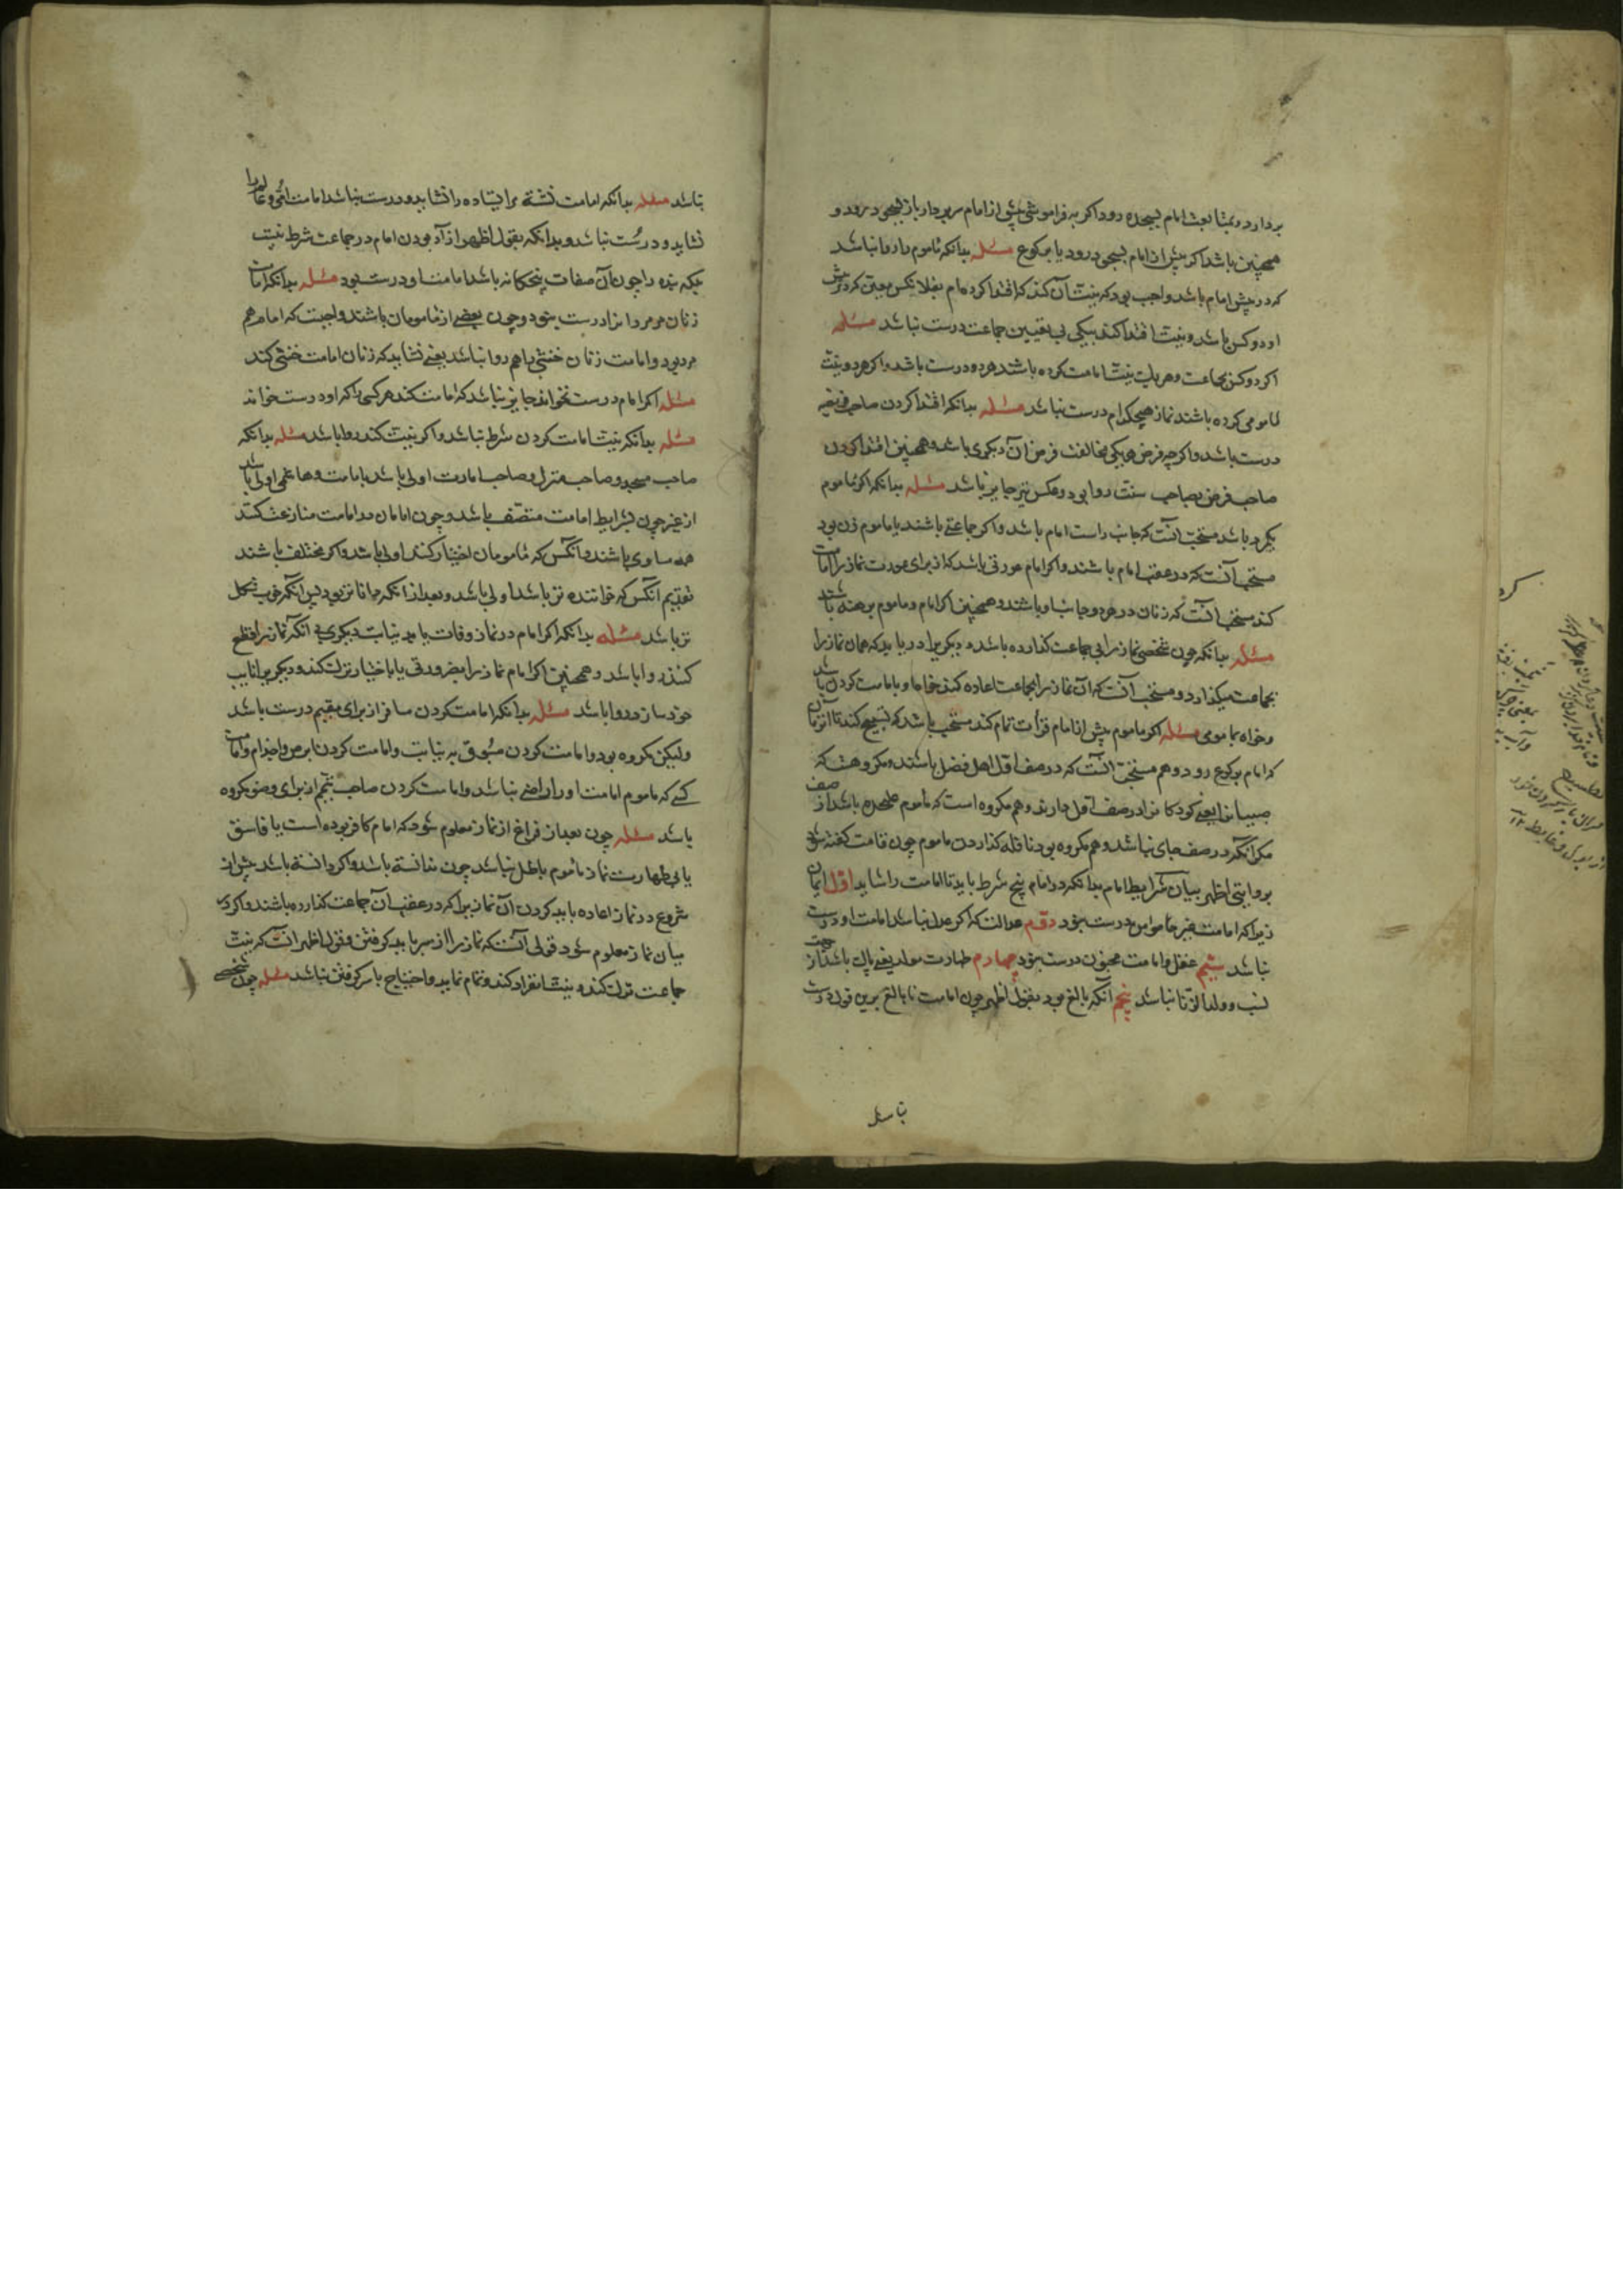 بردارد و بمتابعت امام بسجده رود و اکر به فراموشی پیش از امام سر بردارد باز بسجود رود و
همچنین باشد اکر پیش از امام بسجود رود یا برکوع مسئله بدانکه ماموم را روا نباشد
که در پیش امام باشد و واجب بود که نیت آن کند که اقتدا کردم بامام بفلان کس معین که در پیش
او دو کس باشد و نیت اقتدا کند بیکی بی تعیین جماعت درست نباشد مسئله
اکر دو کس بجماعت و هر یک نیت امامت کرده باشند هر دو درست باشد و اکر هر دو نیت
مامومی کرده باشند نماز هیچکدام درست نباشد مسئله بدانکه اقتدا کردن صاحب فریضه
درست باشد و اکر چه فرض یکی مخالفت فرض آن دیکری باشد و همچنین اقتدا کردن
صاحب فرض بصاحب سنت روا بود و عکس نیز جایز باشد مسئله بدانکه اکر ماموم
یکمرد باشد مستحب آنست که جانب راست امام باشد و اکر جماعتی باشند یا ماموم زن بود
مستحب آنست که در عقب امام باشند و اکر امام عورتی باشد که از برای عورت نماز را امامت
کند مستحب آنست که زنان در هر دو جانب او باشند و همچنین اکر امام و ماموم برهنه باشند
مسئله بدانکه چون شخصی نماز را بی جماعت کذارده باشد و دیکری را دریابد که همان نماز را
بجماعت میکذارد و مستحب آنست که آن نماز را بجماعت اعاده کند خواه او بامامت کردن باشد
و خواه بمامومی مسئله اکر ماموم پیش از امام قرأت تمام کند مستحب باشد که تسبیح کند تا آن زمان
که امام برکوع رود و هم مستحب آنست که در صف اول اهل فضل باشند و مکروهست که
صبیان را یعنی کودکان را در صف اول بدارند و هم مکروه است که ماموم علیحده باشد از صف
مکر آنکه در صف جای نباشد و هم مکروه بود نافله کذاردن ماموم چون قامت کفته شود
بروایتی اظهر بیان شرایط امام بدانکه در امام پنج شرط باید تا امامت را شاید اول ایمان
زیرا که امامت غیر مؤمن درست نبود دوم عدالت که اکر عدل نباشد امامت او درست
نباشد سیم عقل و امامت مجنون درست نبود چهارم طهارت مولد یعنی پاک باشد از جهت
نسب و ولد الزنا نباشد پنجم آنکه بالغ بود بقول اظهر چون امامت نابالغ برین قول درست
نباشد
نباشد مسئله بدانکه امامت نشسته مر ایستاده را نشاید و درست نباشد امامت امی و عالم را
نشاید و درست نباشد و بدانکه بقول اظهر آزاد بودن امام در جماعت شرط نیست
بلکه بنده را چون آن صفات پنجکانه باشد امامت او درست بود مسئله بدانکه امامت
زنان مر مردانرا درست نبود و چون بعضی از مامومان باشند واجبست که امام هم
مرد بود و امامت زنان خنثی را هم روا نباشد یعنی نشاید که زنان امامت خنثی کند
مسئله اکر امام درست نخواند جایز نباشد که امامت کند هر کسی را که او درست خواند
مسئله بدانکه نیت امامت کردن شرط نباشد و اکر نیت کند روا باشد مسئله بدانکه
صاحب مسجد و صاحب منزل و صاحب امارت اولی باشد بامامت و هاشمی اولی باشد
از غیر چون بشرایط امامت متصف باشد و چون امامان در امامت منازعت کنند
همه مساوی باشند و آنکس که مامومان اختیار کنند اولی باشد و اکر مختلف باشند
تقدیم آنکس که خواننده تر باشد اولی باشد و بعد از آنکه داناتر بود پس آنکه خوب شکل
تر باشد مسئله بدانکه اکر امام در نماز وفات یابد نیابت دیکری بی آنکه نماز را قطع
کنند روا باشد و همچنین اکر امام نماز را بضرورتی یا باختیار ترک کند و دیکری را نایب
خود سازد روا باشد مسئله بدانکه امامت کردن مسافر از برای مقیم درست باشد
ولیکن مکروه بود و امامت کردن مسبوق به نیابت و امامت کردن ابرص و اجذام و امامت
کسی که ماموم امامت او را راضی نباشد و امامت کردن صاحب تیمم از برای وضو مکروه
باشد مسئله چون بعد از فراغ از نماز معلوم شود که امام کافر بوده است یا فاسق
یا بی طهارت نماز ماموم باطل نباشد چون ندانسته باشد و اکر دانسته باشد پیش از
شروع در نماز اعاده باید کردن آن نماز را که در عقب آن جماعت کذارده باشند و اکر در
میان نماز معلوم شود قولی آنست که نماز را از سر باید کرفتن و قول اظهر آنست که نیت
جماعت ترک کند و نیت انفراد کند و تمام نماید و احتیاج با سر کرفتن نباشد مسئله چون شخصی